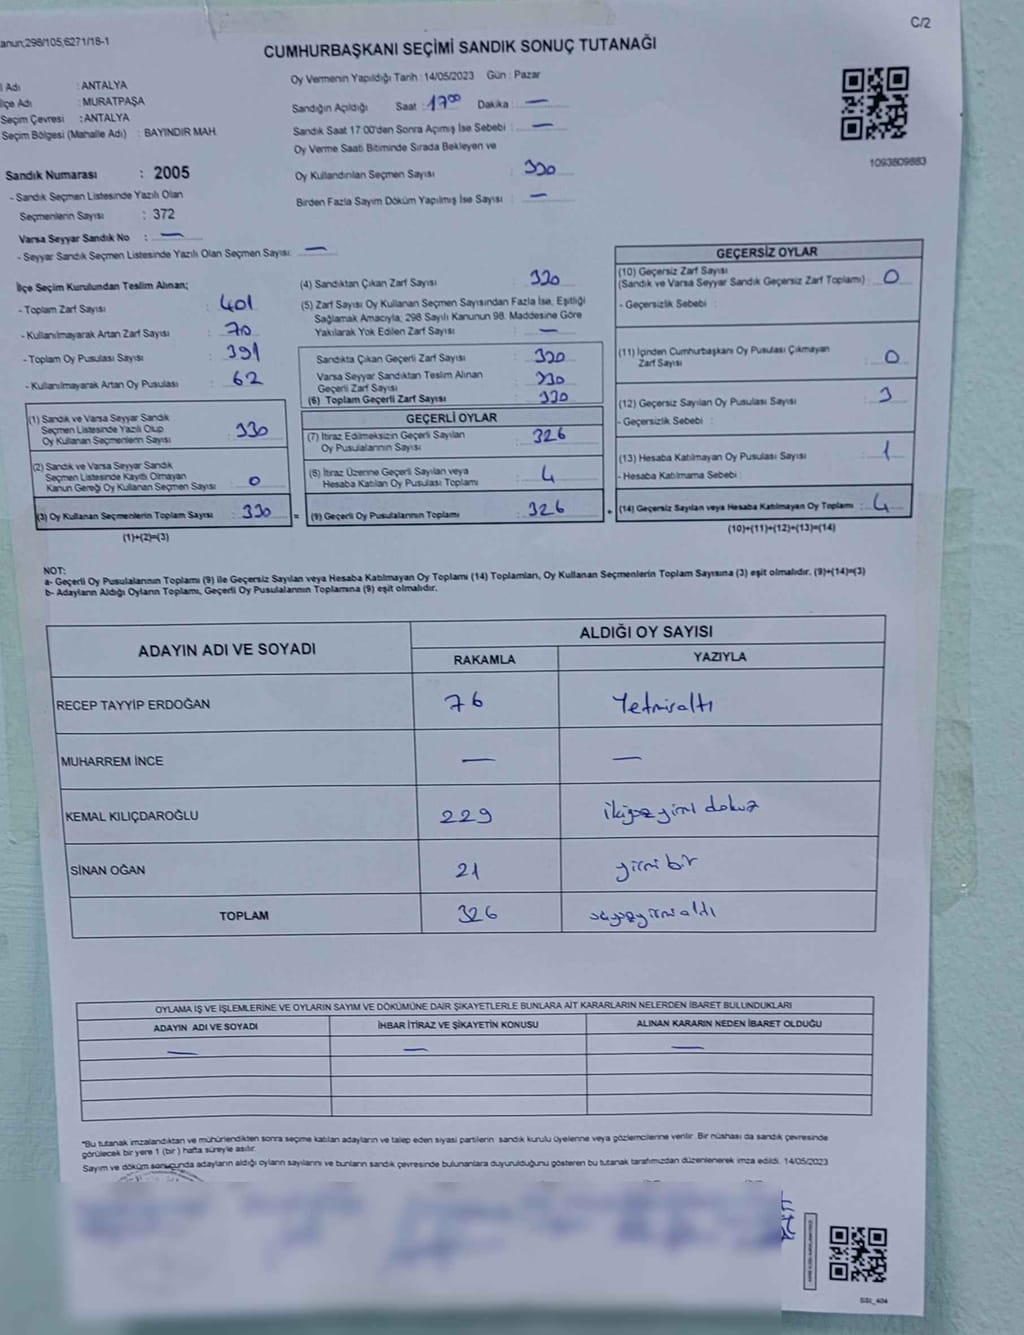 anun;298/105;6271/18-1
C/2
CUMHURBAŞKANI SEÇİMİ SANDIK SONUÇ TUTANAĞI
Oy Vermenin Yapıldığı Tarih : 14/05/2023 Gün : Pazar
l Adı : ANTALYA
lçe Adı : MURATPAŞA
Seçim Çevresi : ANTALYA
Seçim Bölgesi (Mahalle Adı) : BAYINDIR MAH.
Sandığın Açıldığı Saat : 17⁰⁰ Dakika : —
Sandık Saat 17:00'den Sonra Açımış İse Sebebi : —
Oy Verme Saati Bitiminde Sırada Bekleyen ve
Oy Kullandırılan Seçmen Sayısı : 330
Birden Fazla Sayım Döküm Yapılmış İse Sayısı : —
1093809883
Sandık Numarası : 2005
- Sandık Seçmen Listesinde Yazılı Olan
Seçmenlerin Sayısı : 372
Varsa Seyyar Sandık No : —
- Seyyar Sandık Seçmen Listesinde Yazılı Olan Seçmen Sayısı: —
İlçe Seçim Kurulundan Teslim Alınan;
- Toplam Zarf Sayısı : 401
- Kullanılmayarak Artan Zarf Sayısı : 70
- Toplam Oy Pusulası Sayısı : 391
- Kullanılmayarak Artan Oy Pusulası : 62
(1) Sandık ve Varsa Seyyar Sandık
Seçmen Listesinde Yazılı Olup
Oy Kullanan Seçmenlerin Sayısı : 330
(2) Sandık ve Varsa Seyyar Sandık
Seçmen Listesinde Kayıtlı Olmayan
Kanun Gereği Oy Kullanan Seçmen Sayısı : 0
(3) Oy Kullanan Seçmenlerin Toplam Sayısı : 330 =
(1)+(2)=(3)
(4) Sandıktan Çıkan Zarf Sayısı : 330
(5) Zarf Sayısı Oy Kullanan Seçmen Sayısından Fazla İse, Eşitliği
Sağlamak Amacıyla; 298 Sayılı Kanunun 98. Maddesine Göre
Yakılarak Yok Edilen Zarf Sayısı : —
Sandıkta Çıkan Geçerli Zarf Sayısı : 330
Varsa Seyyar Sandıktan Teslim Alınan
Geçerli Zarf Sayısı : 330
(6) Toplam Geçerli Zarf Sayısı : 330
GEÇERLİ OYLAR
(7) İtiraz Edilmeksizin Geçerli Sayılan
Oy Pusulalarının Sayısı : 326
(8) İtiraz Üzerine Geçerli Sayılan veya
Hesaba Katılan Oy Pusulası Toplamı : 4
(9) Geçerli Oy Pusulalarının Toplamı : 326 +
GEÇERSİZ OYLAR
(10) Geçersiz Zarf Sayısı
(Sandık ve Varsa Seyyar Sandık Geçersiz Zarf Toplamı) : 0
- Geçersizlik Sebebi :
(11) İçinden Cumhurbaşkanı Oy Pusulası Çıkmayan
Zarf Sayısı : 0
(12) Geçersiz Sayılan Oy Pusulası Sayısı : 3
- Geçersizlik Sebebi :
(13) Hesaba Katılmayan Oy Pusulası Sayısı : 1
- Hesaba Katılmama Sebebi :
(14) Geçersiz Sayılan veya Hesaba Katılmayan Oy Toplamı : 4
(10)+(11)+(12)+(13)=(14)
NOT:
a- Geçerli Oy Pusulalarının Toplamı (9) ile Geçersiz Sayılan veya Hesaba Katılmayan Oy Toplamı (14) Toplamları, Oy Kullanan Seçmenlerin Toplam Sayısına (3) eşit olmalıdır. (9)+(14)=(3)
b- Adayların Aldığı Oyların Toplamı, Geçerli Oy Pusulalarının Toplamına (9) eşit olmalıdır.
ADAYIN ADI VE SOYADI ALDIĞI OY SAYISI
RAKAMLA YAZIYLA
RECEP TAYYİP ERDOĞAN 76 Yetmişaltı
MUHARREM İNCE — —
KEMAL KILIÇDAROĞLU 229 ikiyüz yirmi dokuz
SİNAN OĞAN 21 yirmi bir
TOPLAM 326 üçyüzyirmialtı
OYLAMA İŞ VE İŞLEMLERİNE VE OYLARIN SAYIM VE DÖKÜMÜNE DAİR ŞİKAYETLERLE BUNLARA AİT KARARLARIN NELERDEN İBARET BULUNDUKLARI
ADAYIN ADI VE SOYADI İHBAR İTİRAZ VE ŞİKAYETİN KONUSU ALINAN KARARIN NEDEN İBARET OLDUĞU
— — —
*Bu tutanak imzalandıktan ve mühürlendikten sonra seçime katılan adayların ve talep eden siyasi partilerin sandık kurulu üyelerine veya gözlemcilerine verilir. Bir nüshası da sandık çevresinde
görülecek bir yere 1 (bir) hafta süreyle asılır.
Sayım ve döküm sonucunda adayların aldığı oyların sayılarını ve bunların sandık çevresinde bulunanlara duyurulduğunu gösteren bu tutanak tarafımızdan düzenlenerek imza edildi. 14/05/2023
SSI_404